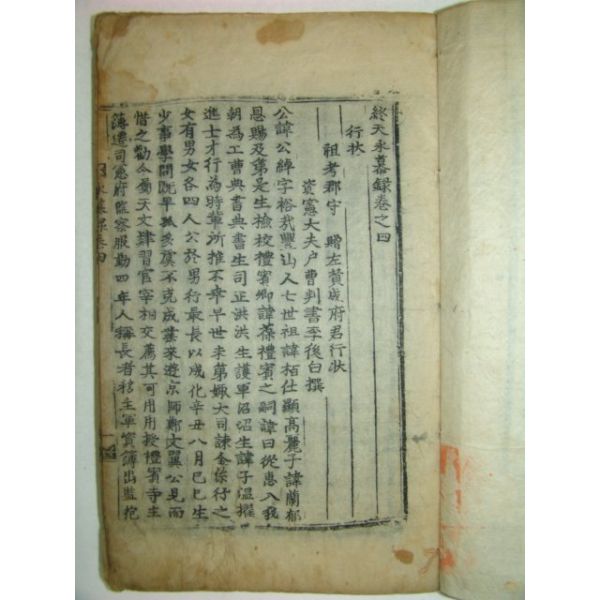 終天永慕錄卷之四
行狀
祖考郡守 贈左贊成府君行狀
資憲大夫戶曹判書李後白撰
公諱公綽字裕哉豐山人七世祖諱栢仕顯高麗子諱蘭郁
恩賜及第是生檢校禮賓卿諱葆禮賓之嗣諱曰從惠入我
朝為工曹典書典書生司正洪洪生護軍沼沼生諱子溫擢
進士才行為時輩所推不幸早世李第娵大司諫金係行之
女有男女各四人公於男行最長以成化辛丑八月己巳生
少事學問既早孤多虞不克成業來遊京師鄭文翼公見而
惜之勸令為天文肄習官宰相交薦其可用用授禮賓寺主
簿遷司憲府監察服勤四年人稱長者移主軍資簿出監抱
永慕錄卷四